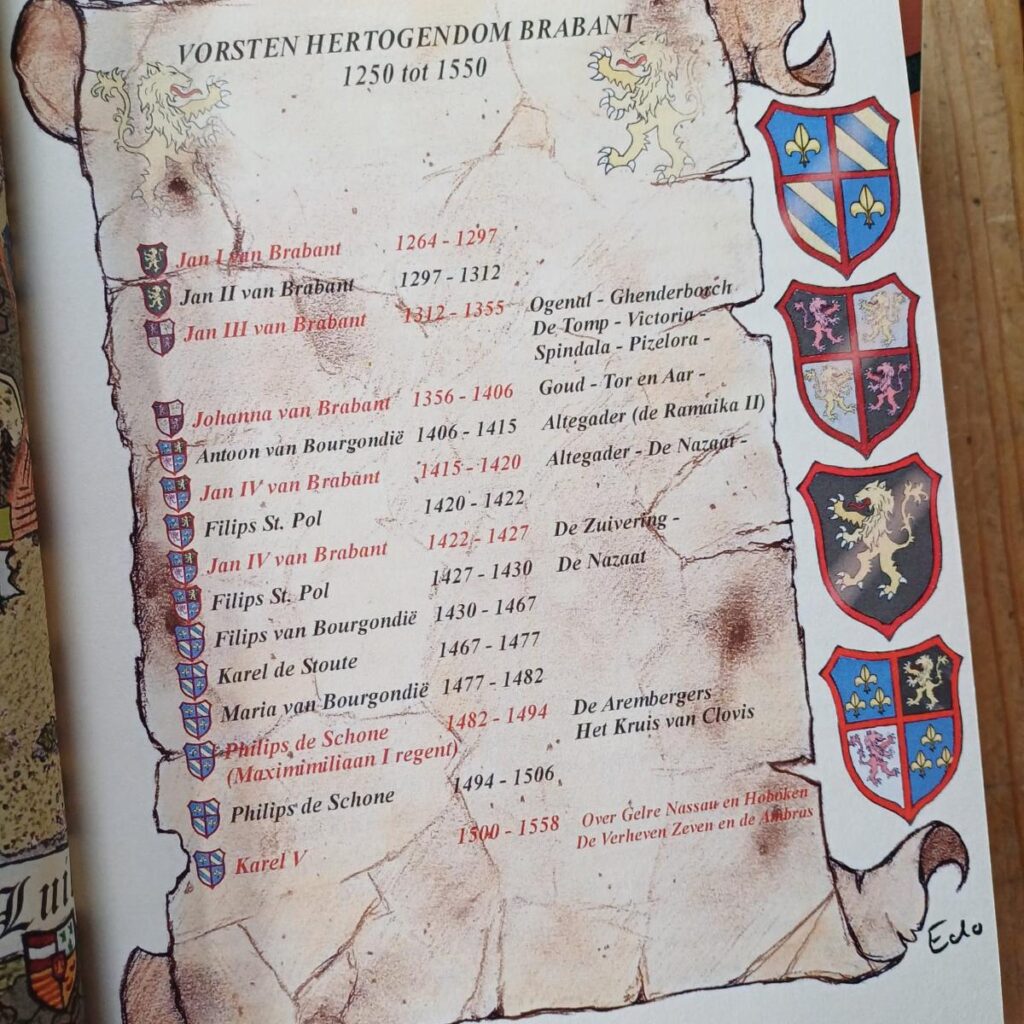 VORSTEN HERTOGENDOM BRABANT
1250 tot 1550
Jan I van Brabant 1264 - 1297
Jan II van Brabant 1297 - 1312
Jan III van Brabant 1312 - 1355 Ogenal - Ghenderborch
De Tomp - Victoria -
Spindala - Pizelora -
Johanna van Brabant 1356 - 1406 Goud - Tor en Aar -
Antoon van Bourgondië 1406 - 1415 Altegader (de Ramaika II)
Jan IV van Brabant 1415 - 1420 Altegader - De Nazaat -
Filips St. Pol 1420 - 1422
Jan IV van Brabant 1422 - 1427 De Zuivering -
Filips St. Pol 1427 - 1430 De Nazaat
Filips van Bourgondië 1430 - 1467
Karel de Stoute 1467 - 1477
Maria van Bourgondië 1477 - 1482
Philips de Schone 1482 - 1494 De Arembergers
(Maximimiliaan I regent) Het Kruis van Clovis
Philips de Schone 1494 - 1506
Karel V 1500 - 1558 Over Gelre Nassau en Hoboken
De Verheven Zeven en de Ambras
Edo